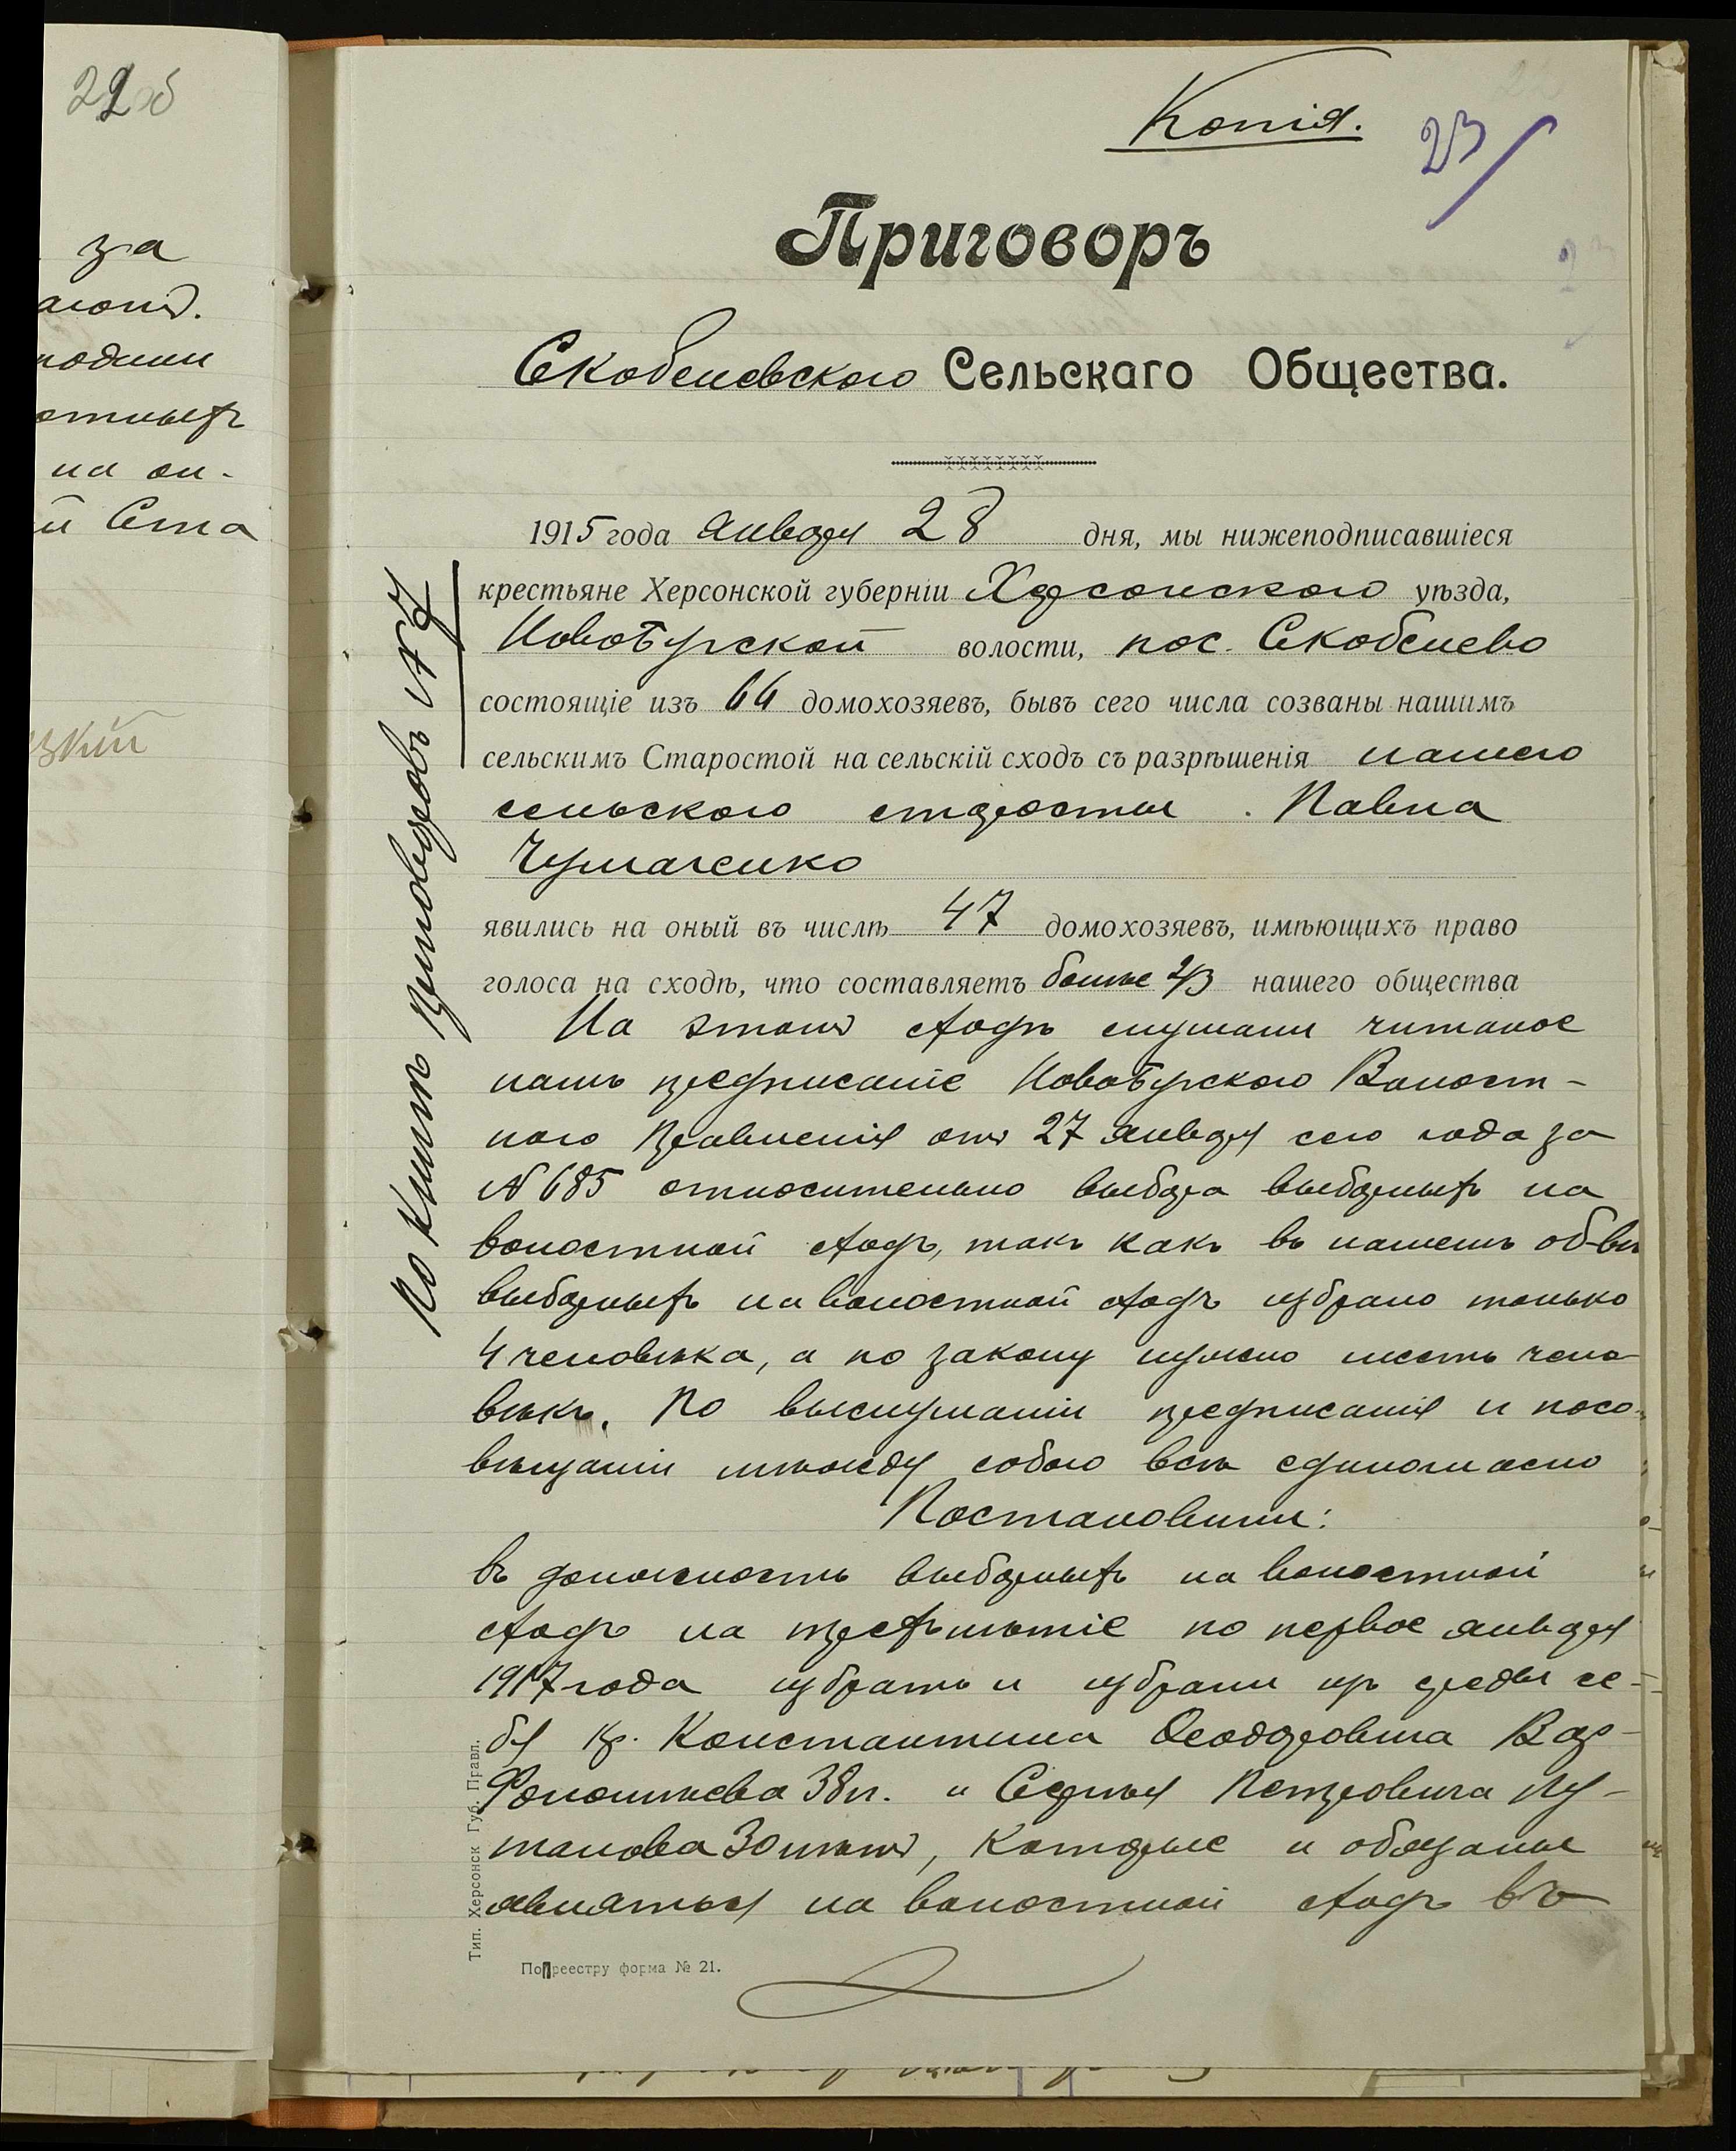 22об
за
на он-
й Ста
Копія.
23
Приговоръ
Скобелевского Сельскаго Общества.
1915 года января 28 дня, мы нижеподписавшіеся
крестьяне Херсонской губерніи Херсонского уѣзда,
Новобугской волости, пос. Скобелево
состоящіе изъ 64 домохозяевъ, бывъ сего числа созваны нашимъ
сельскимъ Старостой на сельскій сходъ съ разрѣшенія нашего
сельского старосты Павла
Чумаченко
явились на оный въ числѣ 47 домохозяевъ, имѣющихъ право
голоса на сходѣ, что составляетъ болѣе 2/3 нашего общества
На этомъ сходѣ слушали читаное
намъ предписаніе Новобугского Волост-
ного Правленія отъ 27 января сего года за
№ 685 относительно выбора выборныхъ на
волостной сходъ, такъ какъ въ нашемъ об-вѣ
выборныхъ на волостной сходъ избрано только
4 человѣка, а по закону нужно шесть чело
вѣкъ. По выслушаніи предписанія и посо-
вѣщаніи между собою всѣ единогласно
Постановили:
въ должность выборныхъ на волостной
сходъ на трехлѣтіе по первое января
1917 года избрать и избрали изъ среды се-
бя кр. Константина Феодоровича Вар-
фоломѣева 38 л. и Сергѣя Петровича Лу-
танова 30 лѣтъ, которые и обязаны
являться на волостной сходъ въ
По книгѣ приговоровъ № 7
Тип. Херсонск Губ. Правл.
По реестру форма № 21.